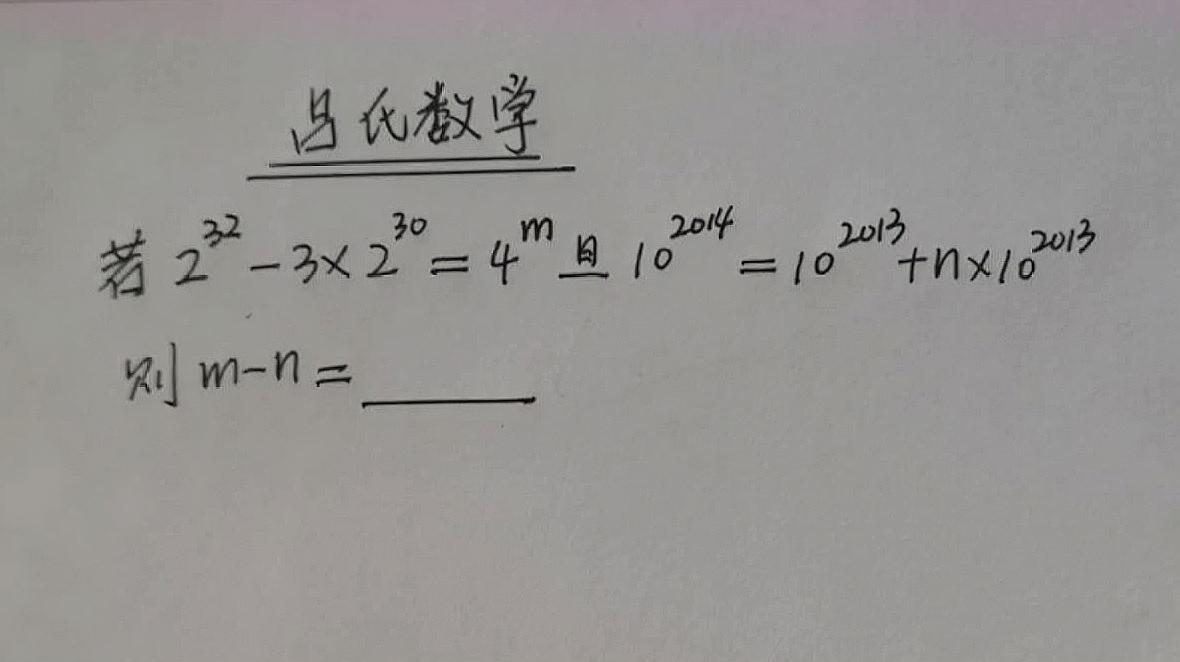 吕氏数学
若 2³² - 3×2³⁰ = 4ᵐ 且 10²⁰¹⁴ = 10²⁰¹³ + n×10²⁰¹³
则 m-n = ______